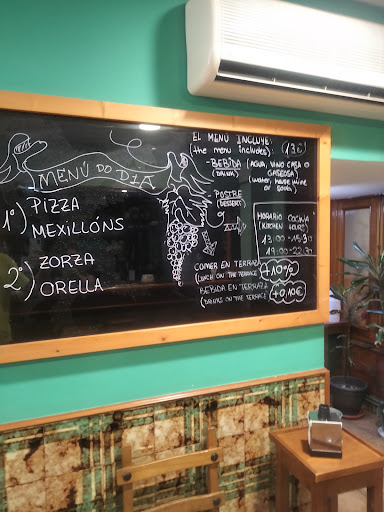 MENÚ DO DIA
1º) PIZZA
MEXILLÓNS
2º) ZORZA
ORELLA
EL MENÚ INCLUYE:
(the menu includes): 13€
- BEBIDA (AGUA, VINO CASA O
(DRINK) GASEOSA)
(water, house wine
or soda)
- POSTRE
(DESSERT)
HORARIO COCINA
(KITCHEN HOURS)
13:00-15:30
19:00-22:30
COMER EN TERRAZA
(LUNCH ON THE TERRACE) +10%
BEBIDA EN TERRAZA
(DRINKS ON THE TERRACE) +0,10€